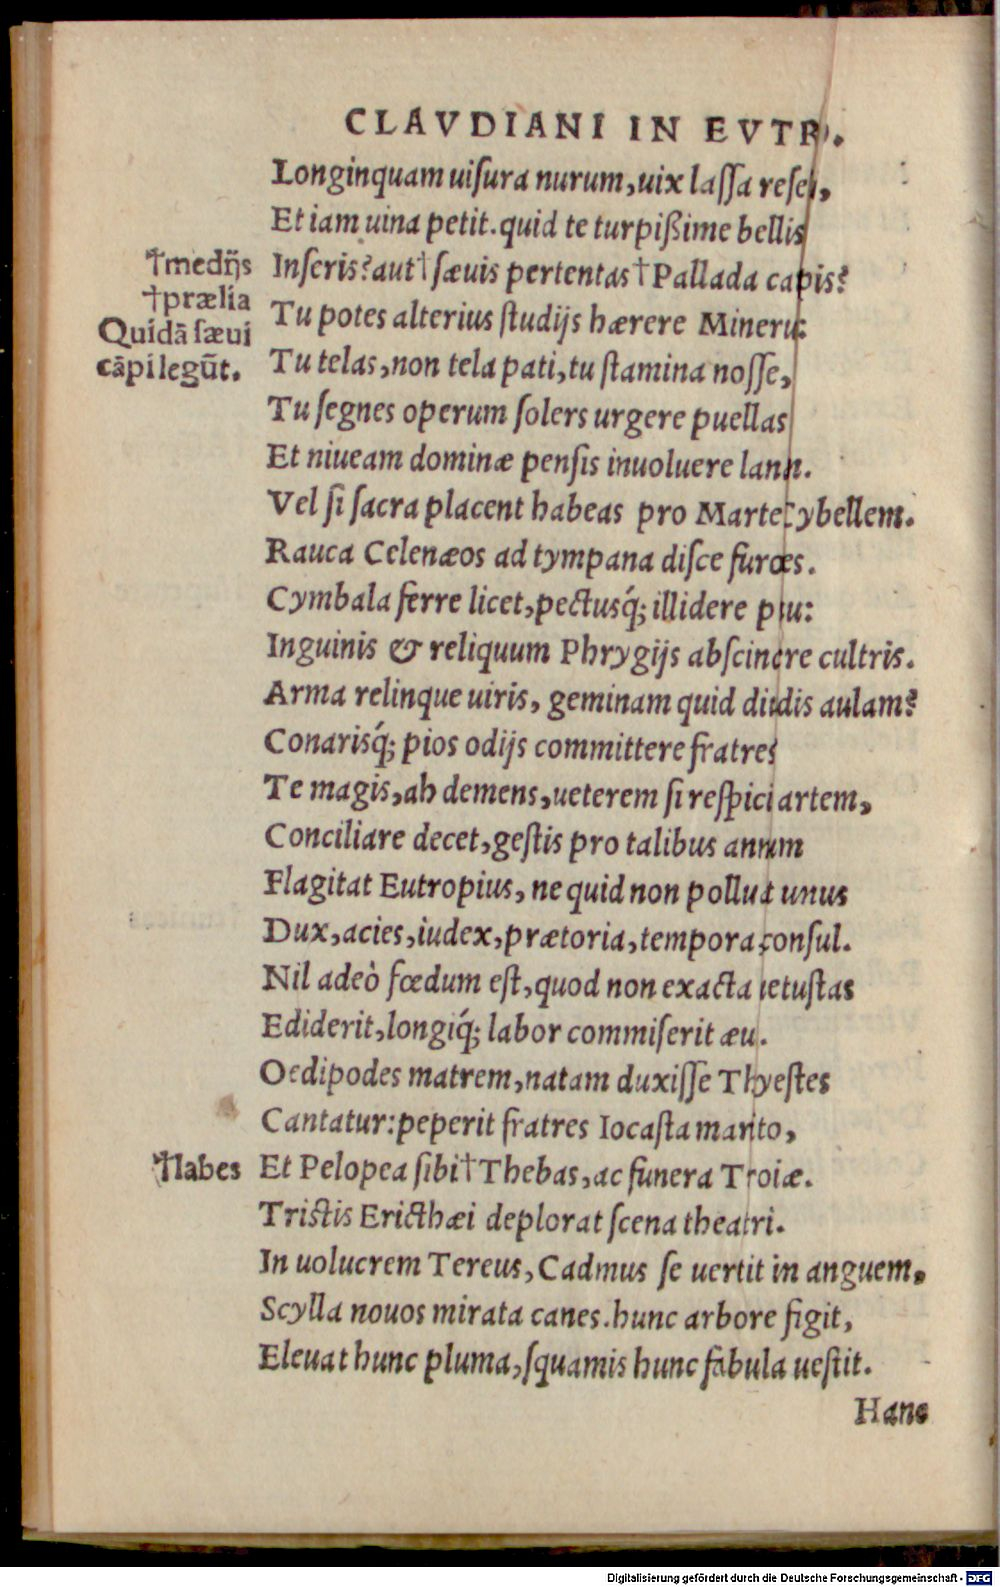 CLAVDIANI IN EVTR.
Longinquam uiſura nurum, uix laſſa
Et iam uina petit. quid te turpißime bellis
†medijs
Inſeris? aut† ſæuis pertentas† Pallada capis?
†prælia
Tu potes alterius ſtudijs hærere
Quidā ſæui
Tu telas, non tela pati, tu ſtamina noſſe,
cāpi legūt.
Tu ſegnes operum ſolers urgere puellas
Et niueam dominæ penſis inuoluere
Vel ſi ſacra placent habeas pro Marte Cybellem.
Rauca Celenæos ad tympana diſce
Cymbala ferre licet, pectusq́; illidere
Inguinis & reliquum Phrygijs cultris.
Arma relinque uiris, geminam quid aulam?
Conarisq́; pios odijs committere fratres
Te magis, ah demens, ueterem ſi artem,
Conciliare decet, geſtis pro talibus
Flagitat Eutropius, ne quid non unus
Dux, acies, iudex, prætoria, tempora conſul.
Nil adeò fœdum eſt, quod non exacta uetuſtas
Ediderit, longiq́; labor commiſerit
Oedipodes matrem, natam duxiſſe Thyeſtes
Cantatur: peperit fratres Iocaſta marito,
†labes
Et Pelopea ſibi† Thebas, ac funera Troiæ.
Triſtis Ericthæi deplorat ſcena theatri.
In uolucrem Tereus, Cadmus ſe uertit in anguem,
Scylla nouos mirata canes. hunc arbore figit,
Eleuat hunc pluma, ſquamis hunc fabula ueſtit.
Hanc
Digitalisierung gefördert durch die Deutsche Forschungsgemeinschaft - DFG